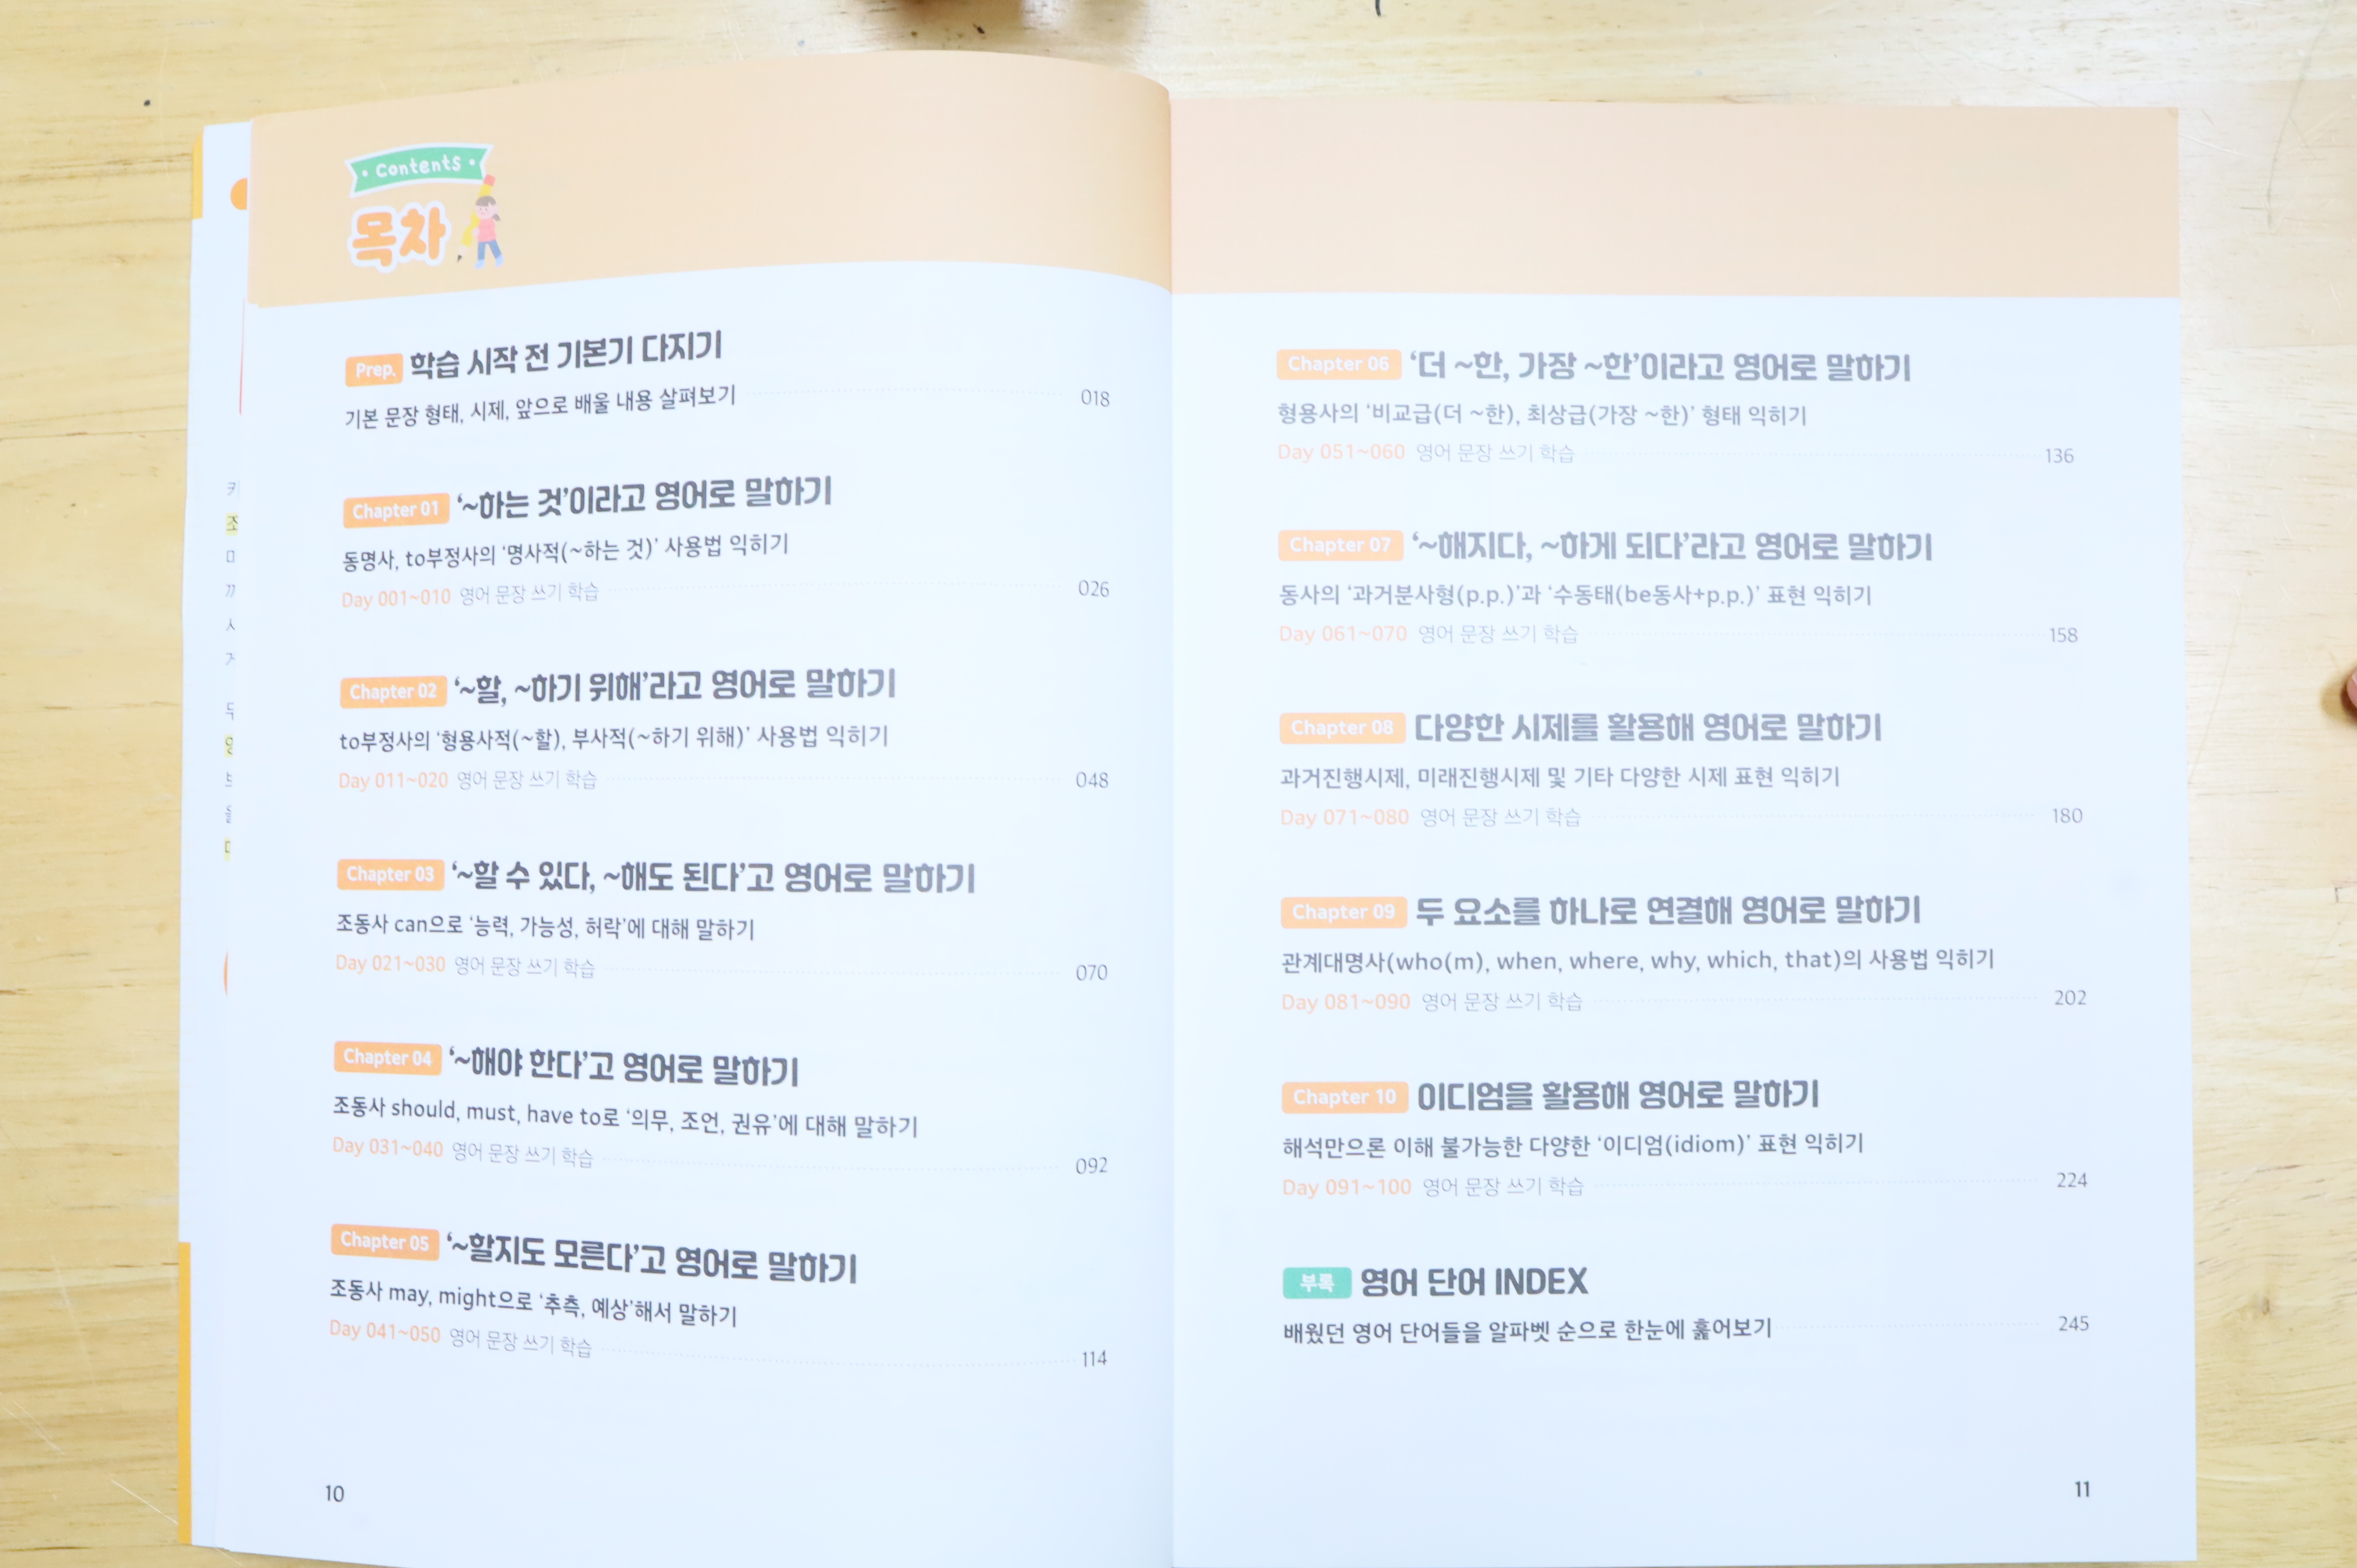 Contents
목차
Prep. 학습 시작 전 기본기 다지기
기본 문장 형태, 시제, 앞으로 배울 내용 살펴보기 018
Chapter 01 ‘~하는 것’이라고 영어로 말하기
동명사, to부정사의 ‘명사적(~하는 것)’ 사용법 익히기
Day 001~010 영어 문장 쓰기 학습 026
Chapter 02 ‘~할, ~하기 위해’라고 영어로 말하기
to부정사의 ‘형용사적(~할), 부사적(~하기 위해)’ 사용법 익히기
Day 011~020 영어 문장 쓰기 학습 048
Chapter 03 ‘~할 수 있다, ~해도 된다’고 영어로 말하기
조동사 can으로 ‘능력, 가능성, 허락’에 대해 말하기
Day 021~030 영어 문장 쓰기 학습 070
Chapter 04 ‘~해야 한다’고 영어로 말하기
조동사 should, must, have to로 ‘의무, 조언, 권유’에 대해 말하기
Day 031~040 영어 문장 쓰기 학습 092
Chapter 05 ‘~할지도 모른다’고 영어로 말하기
조동사 may, might으로 ‘추측, 예상’해서 말하기
Day 041~050 영어 문장 쓰기 학습 114
10
Chapter 06 ‘더 ~한, 가장 ~한’이라고 영어로 말하기
형용사의 ‘비교급(더 ~한), 최상급(가장 ~한)’ 형태 익히기
Day 051~060 영어 문장 쓰기 학습 136
Chapter 07 ‘~해지다, ~하게 되다’라고 영어로 말하기
동사의 ‘과거분사형(p.p.)’과 ‘수동태(be동사+p.p.)’ 표현 익히기
Day 061~070 영어 문장 쓰기 학습 158
Chapter 08 다양한 시제를 활용해 영어로 말하기
과거진행시제, 미래진행시제 및 기타 다양한 시제 표현 익히기
Day 071~080 영어 문장 쓰기 학습 180
Chapter 09 두 요소를 하나로 연결해 영어로 말하기
관계대명사(who(m), when, where, why, which, that)의 사용법 익히기
Day 081~090 영어 문장 쓰기 학습 202
Chapter 10 이디엄을 활용해 영어로 말하기
해석만으론 이해 불가능한 다양한 ‘이디엄(idiom)’ 표현 익히기
Day 091~100 영어 문장 쓰기 학습 224
부록 영어 단어 INDEX
배웠던 영어 단어들을 알파벳 순으로 한눈에 훑어보기 245
11